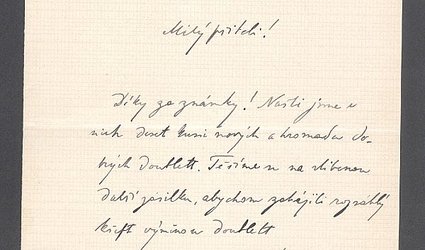 Milý příteli!
Díky za známky! Našli jsme v
nich deset kusů nových a hromadu do-
brých doublett. Těšíme se na slíbenou
další zásilku, abychom zahájili rozsáhlý
kšeft výměnou doublett